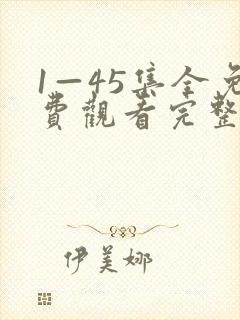 1—45集全免
費觀看完整
伊美娜